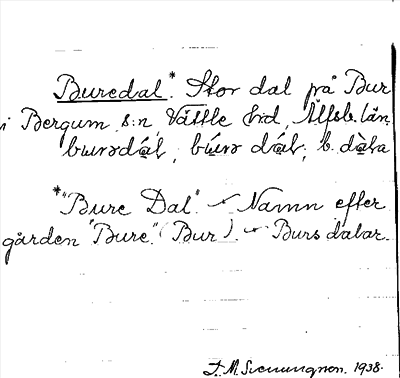 Buredal.* Stor dal på Bur
i Bergum s:n, Vättle hd, Älfsb. län.
burədál, búrə dál; b. dàla
*"Bure Dal". - Namn efter
gården "Bure". (Bur). - Burs dalar.
1938.